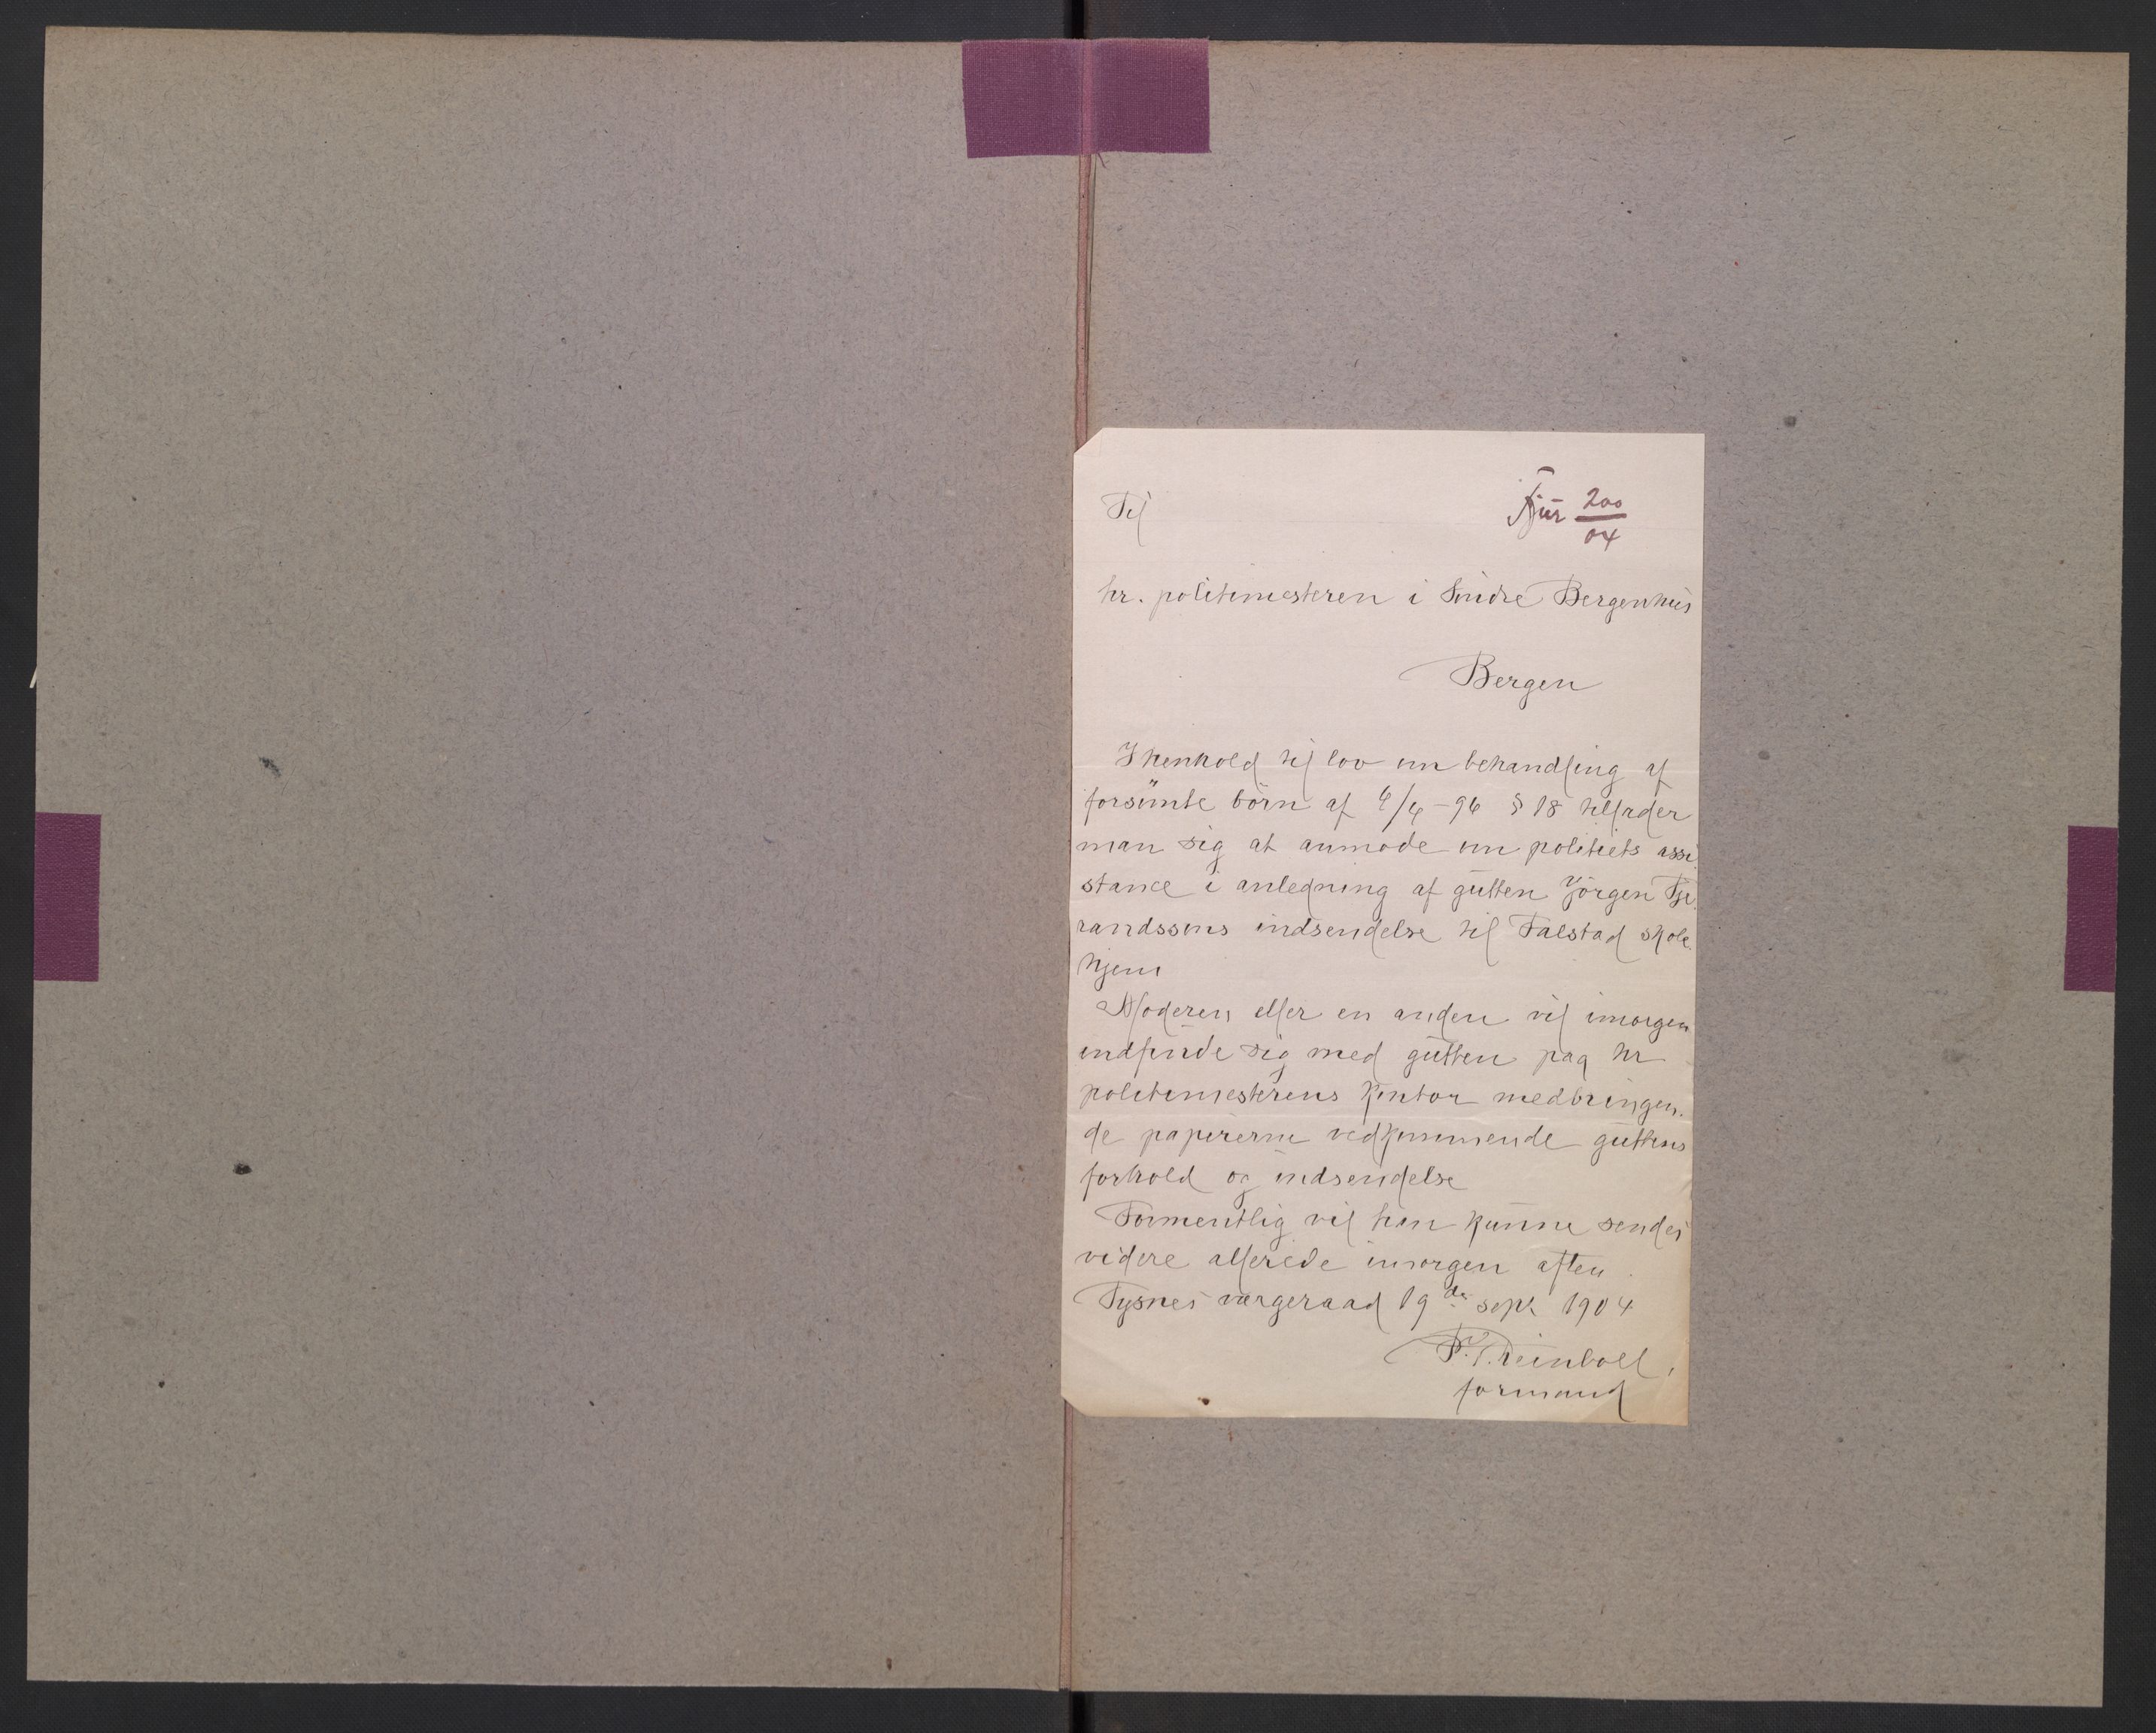 Til
200
04
hr. politimesteren i Søndre Bergenhus
Bergen
I henhold til lov om behandling af
forsømte børn af 6/6-96 § 18 tillader
man sig at anmode om politiets assi
stance i anledning af gutten Jörgen Tje
randssøns indsendelse til Falstad skole
hjem
Moderen eller en anden vil imorgen
indfinde sig med gutten paa hr
politimesterens kontor medbringen.
de papirerne vedkommende guttens
forhold og indsendelse
Formentlig vil han kunne sendes
videre allerede imorgen aften.
Tysnes værgeraad 19de sept 1904
formand